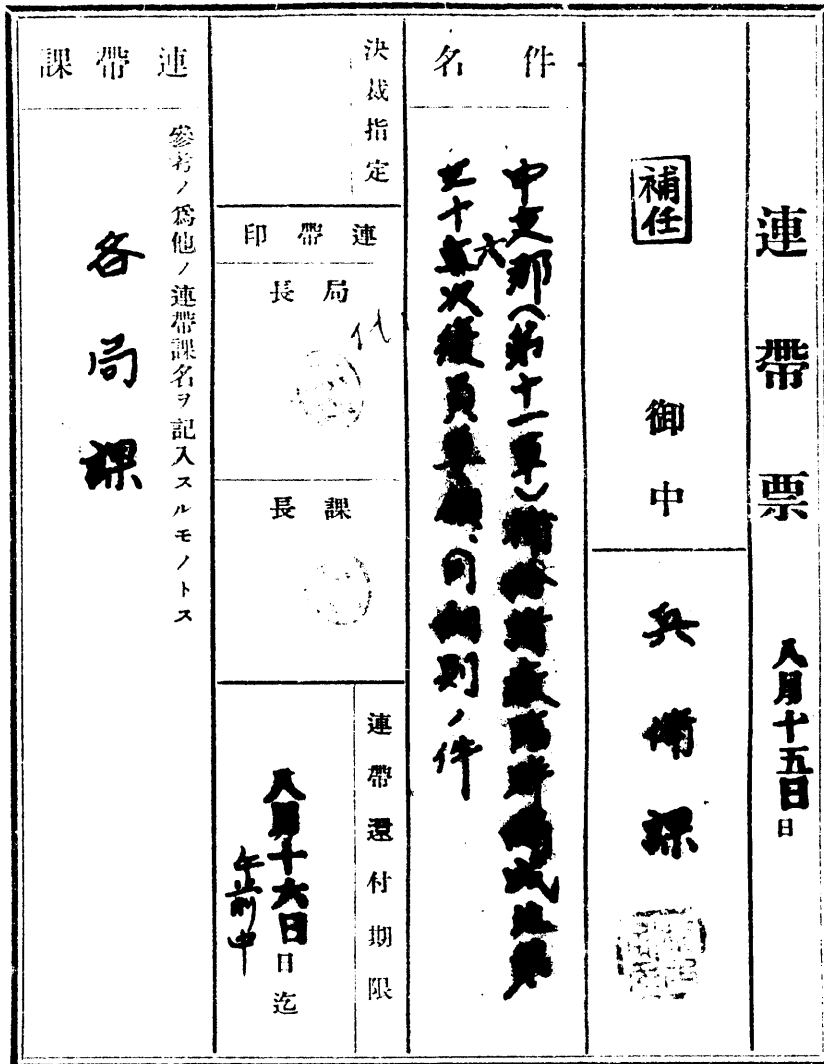 連帶票
八月十五日日
補任
御中
兵備課
件名
中支那(第十一軍)補給諸廠臨時編成竝第
十六次復員要領、同細則ノ件
決裁指定
連帶印
局長
課長
連帶還付期限
八月十六日日迄
午前中
連帶課
參考ノ爲他ノ連帶課名ヲ記入スルモノトス
各局課